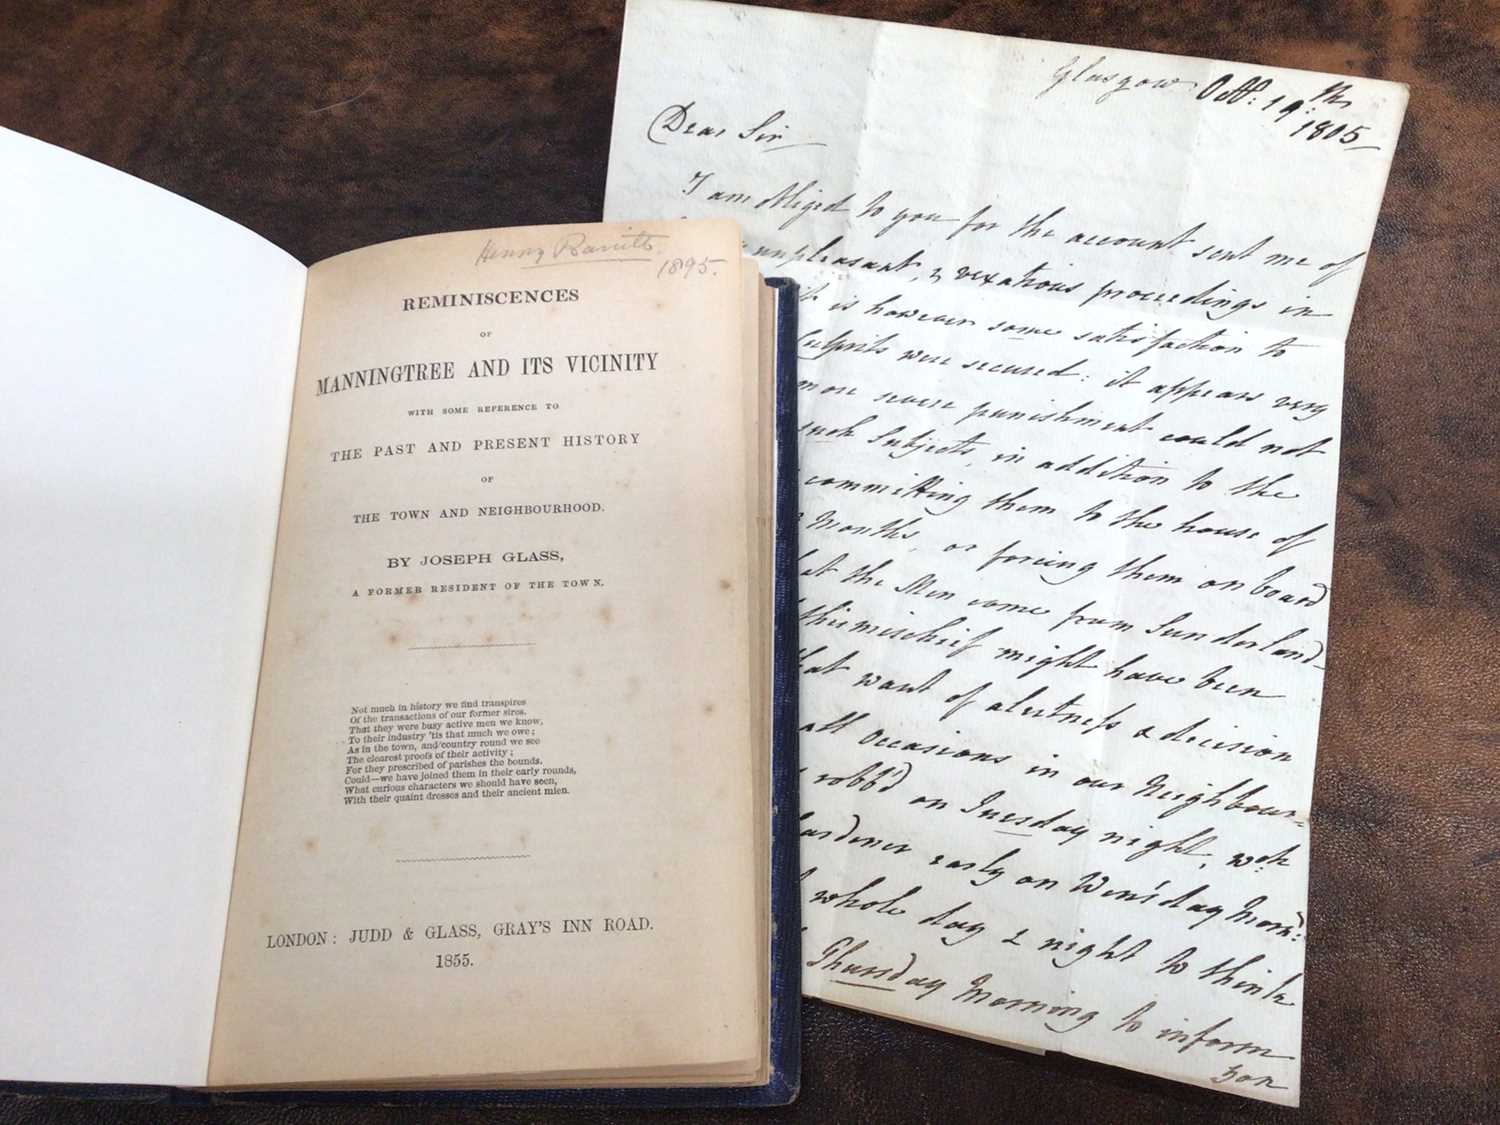 Henny
1895.
REMINISCENCES
OF
MANNINGTREE AND ITS VICINITY
WITH SOME REFERENCE TO
THE PAST AND PRESENT HISTORY
OF
THE TOWN AND NEIGHBOURHOOD.
BY JOSEPH GLASS,
A FORMER RESIDENT OF THE TOWN.
Not much in history we find transpires
Of the transactions of our former sires.
That they were busy active men we know,
To their industry 'tis that much we owe;
As in the town, and country round we see
The clearest proofs of their activity;
For they prescribed of parishes the bounds.
Could—we have joined them in their early rounds,
What curious characters we should have seen,
With their quaint dresses and their ancient mien.
LONDON: JUDD & GLASS, GRAY'S INN ROAD.
1855.
Glasgow Octr. 19th
1805
Dear Sir
I am obliged to you for the account sent me of
unpleasant, & vexatious proceedings in
it is however some satisfaction to
Culprits were secured: it appears very
more severe punishment could not
such Subjects, in addition to the
committing them to the house of
Months, or forcing them on board
the Men come from Sunderland
this mischief might have been
want of alertness & decision
all Occasions in our Neighbour=
robb'd on Tuesday night, wch
early on Wens'day Mornd:
whole day & night to think
Thursday Morning to inform